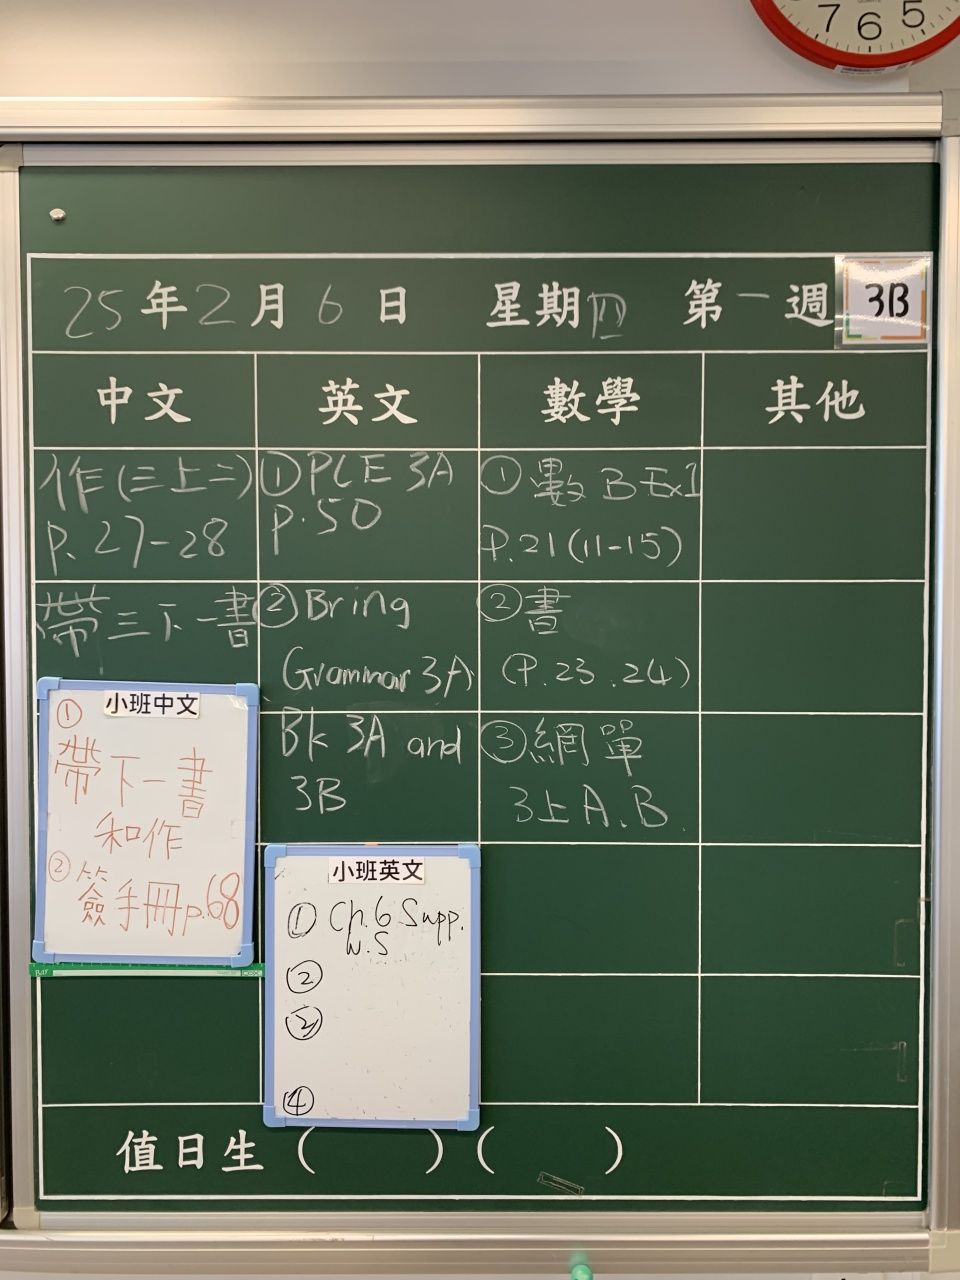 7 6 5
25年2月6日 星期四 第一週 3B
中文 英文 數學 其他
作(三上二)
P.27-28
帶三下一書
小班中文
①
帶下一書
和作
② 簽手冊p.68
①PCE 3A
P.50
②Bring
Grammar 3A
Bk 3A and
3B
小班英文
① Ch.6 Supp.
W.S
②
③
④
①數B Ex1
P.21(11-15)
②書
(P.23.24)
③網單
3上A.B
值日生 ( ) ( )